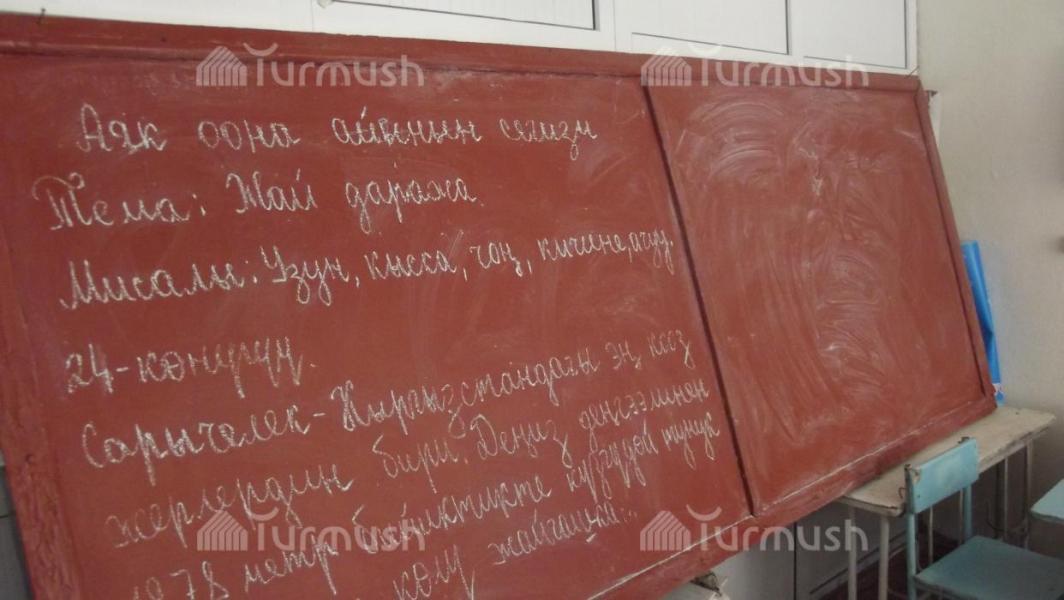 Аяк оона айынын сегизи
Тема: Жай даража.
Мисалы: Узун, кыска, чоң, кичине, ачуу.
24-көнүгүү.
Сарычелек - Кыргызстандагы эң кооз
жерлердин бири. Деңиз деңгээлинен
1878 метр бийиктикте күзгүдөй тунук
көлү жайгашка..
Turmush
Turmush
Turmush
Turmush